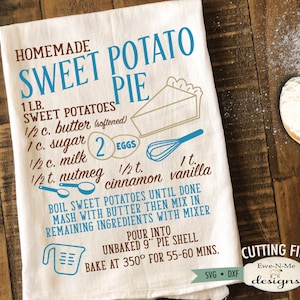 HOMEMADE
SWEET POTATO
PIE
1 LB.
SWEET POTATOES
1/2 c. butter (softened)
1 c. sugar
2 EGGS
1/2 c. milk
1/2 t. nutmeg
1/2 t. cinnamon
1 t. vanilla
BOIL SWEET POTATOES UNTIL DONE
MASH WITH BUTTER THEN MIX IN
REMAINING INGREDIENTS WITH MIXER
POUR INTO
UNBAKED 9" PIE SHELL
BAKE AT 350° FOR 55-60 MINS.
CUTTING FI
SVG • DXF
Ewe-N-Me
designs